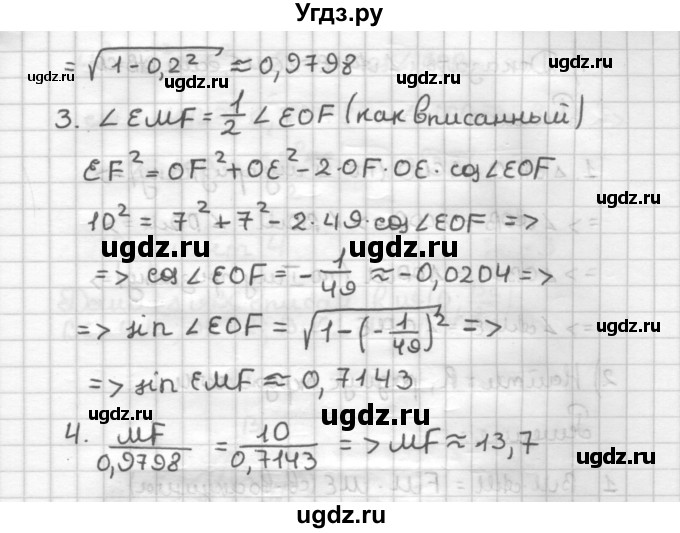 Угдз.ру
= √(1-0,2²) ≈ 0,9798
ugdz.ru
ugdz.ru
ugdz.ru
3. ∠EMF = 1/2 ∠EOF (как вписанный)
EF² = OF² + OE² - 2·OF·OE·cos∠EOF
ugdz.ru
10² = 7² + 7² - 2·49·cos∠EOF =>
ugdz.ru
ugdz.ru
=> cos∠EOF = -1/49 ≈ -0,0204 =>
=> sin∠EOF = √(1-(-1/49)²) =>
ugdz.ru
=> sin EMF ≈ 0,7143
ugdz.ru
ugdz.ru
4. MF/0,9798 = 10/0,7143 => MF ≈ 13,7
ugdz.ru
ugdz.ru
ugdz.ru